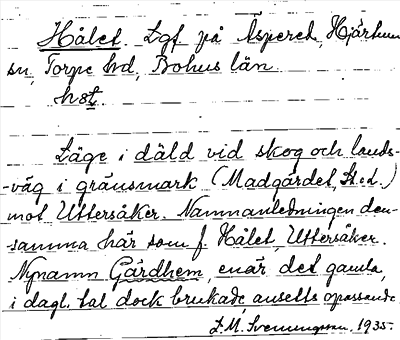 Hålet. Lgt på Åsperet, Hjärtum
sn, Torpe hd, Bohus län.
hst
Läge i däld vid skog och lands-
-väg i gränsmark (Madgärdet, St.ed.)
mot Uttersåker. Namnanledningen den-
samma här som f. Hålet, Uttersåker.
Nynamn Gärdhem, enär det gamla,
i dagl. tal dock brukade, ansetts opassande.
1935.